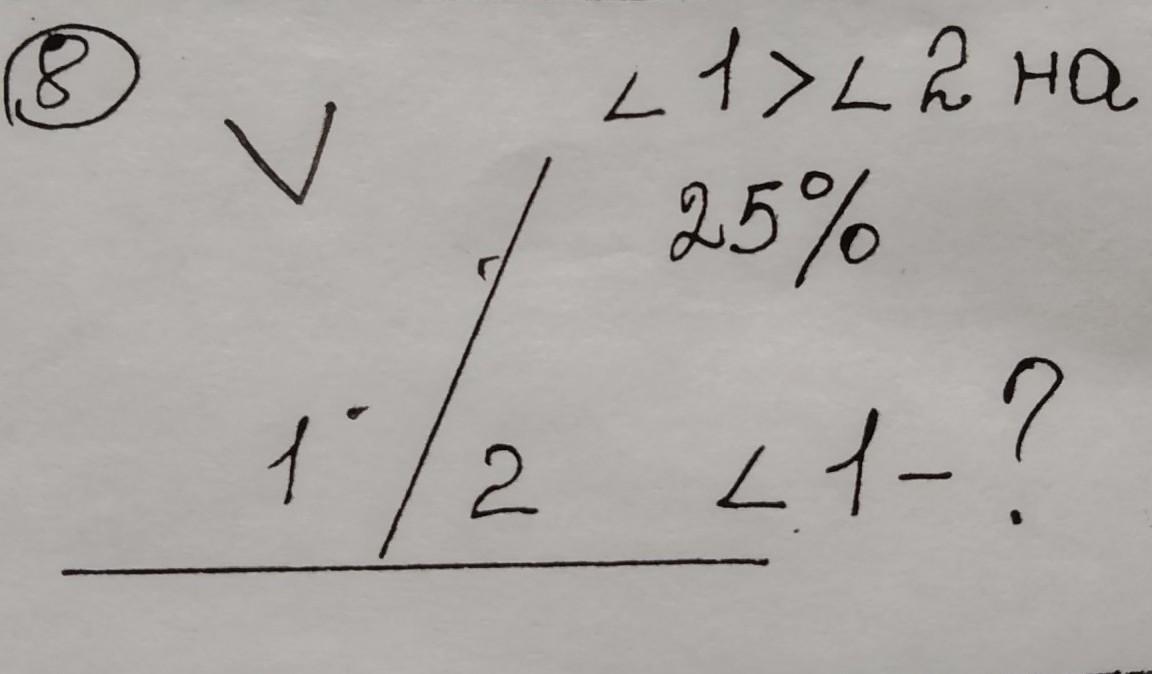 8
∠1>∠2 на
25%
1 2 ∠1-?